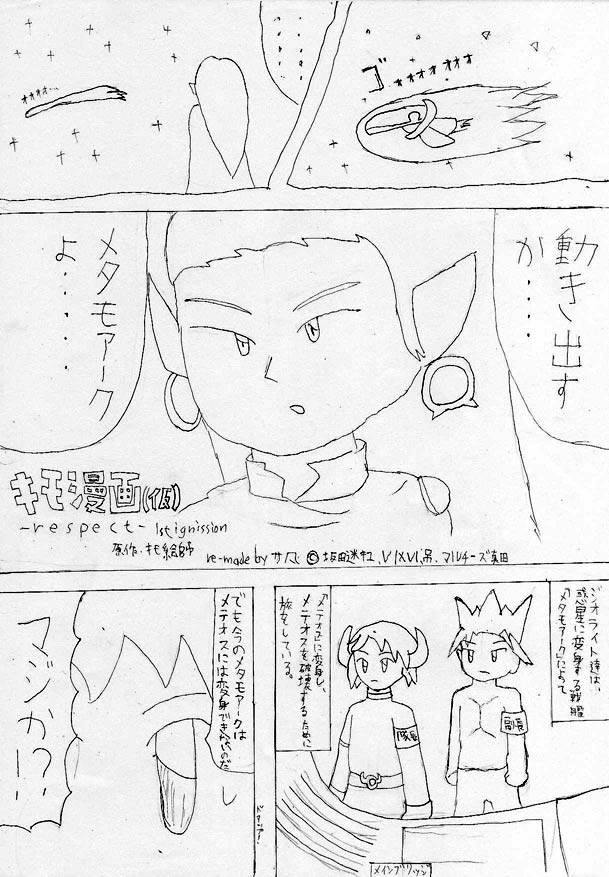 ゴォォォォォォ
ォォォォ…
動き出す
か……
メタモアーク
よ……
キモ漫画(仮)
-respect- 1st ignission
原作・キモ絵師
ジオライト達は、
惑星に変身する戦艦
「メタモアーク」によって、
「メテオス」に変身し、
メテオスを破壊するために
旅をしている。
副長
隊長
メインブリッジ
でも今のメタモアークは
メテオスには変身できないのだ
マジか!?